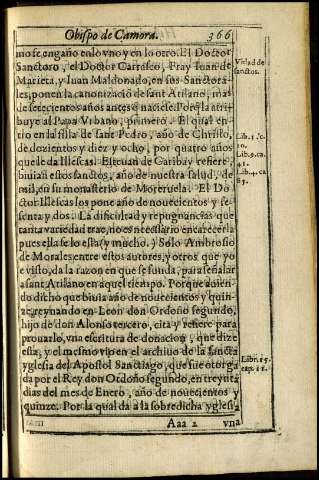 Obispo de Çamora. 366
mo se engaño en lo vno y en lo otro. El Doctor
Sanctoro, el Doctor Carrasco, Fray Iuan de
Marieta, y Iuan Maldonado, en sus Sanctora-
les, ponen la canonizaciō de sant Atilano, mas
de setecientos años antes q̄ naciesse. Porq̄ la atri
buye al Papa Vrbano, primero. El qual en-
trò en la silla de sant Pedro, año de Christo,
de dozientos y diez y ocho, por quatro años
que le da Illescas. Esteuan de Garibay refiere,
biuia estos sanctos, año de nuestra salud, de
mil, en su monasterio de Moreruela. El Do
ctor Illescas los pone año de nouecientos y se-
senta y dos. La dificultad y repugnancias que
tanta variedad trae, no es necessario encarecerla
pues ella se lo està (y mucho.) Solo Ambrosio
de Morales, entre estos autores, y otros que yo
e visto, da la razon en que se funda, para señalar
a sant Atilano en aquel tiempo. Porque auien-
do dicho que biuia año de nouecientos y quin-
ze, reynando en Leon don Ordoño segundo,
hijo de don Alonso tercero, cita y refiere para
prouarlo, vna escritura de donacion, que dize
està, y el mesmo vio en el archiuo de la sancta
yglesia del Apostol Sanctiago, que fue otorga
da por el Rey don Ordoño segundo, en treynta
dias del mes de Enero, año de nouecientos y
quinze. Por la qual da a la sobredicha yglesia
Aaa 2 vna
Vidad de
sanctos.
Lib. 1. c.
10.
Lib. 9. ca.
41.
Lib. 4. ca
85.
Libr. 15.
cap. 11.